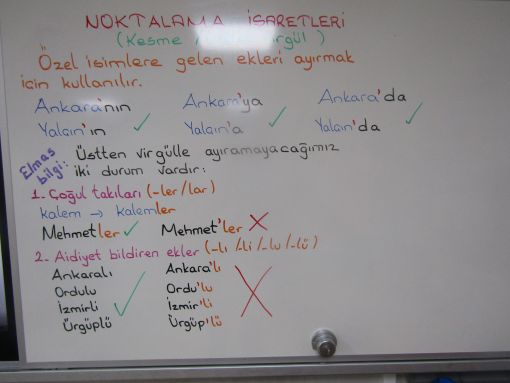 NOKTALAMA İŞARETLERİ
(Kesme
Özel isimlere gelen ekleri ayırmak
için kullanılır.
Ankara'nın Ankara'ya Ankara'da
Yalçın'ın Yalçın'a Yalçın'da
Elmas bilgi: Üstten virgülle ayıramayacağımız
iki durum vardır:
1. Çoğul takıları (-ler/lar)
kalem → kalemler
Mehmetler Mehmet'ler
2. Aidiyet bildiren ekler (-lı/-li/-lu/-lü)
Ankaralı Ankara'lı
Ordulu Ordu'lu
İzmirli İzmir'li
Ürgüplü Ürgüp'lü